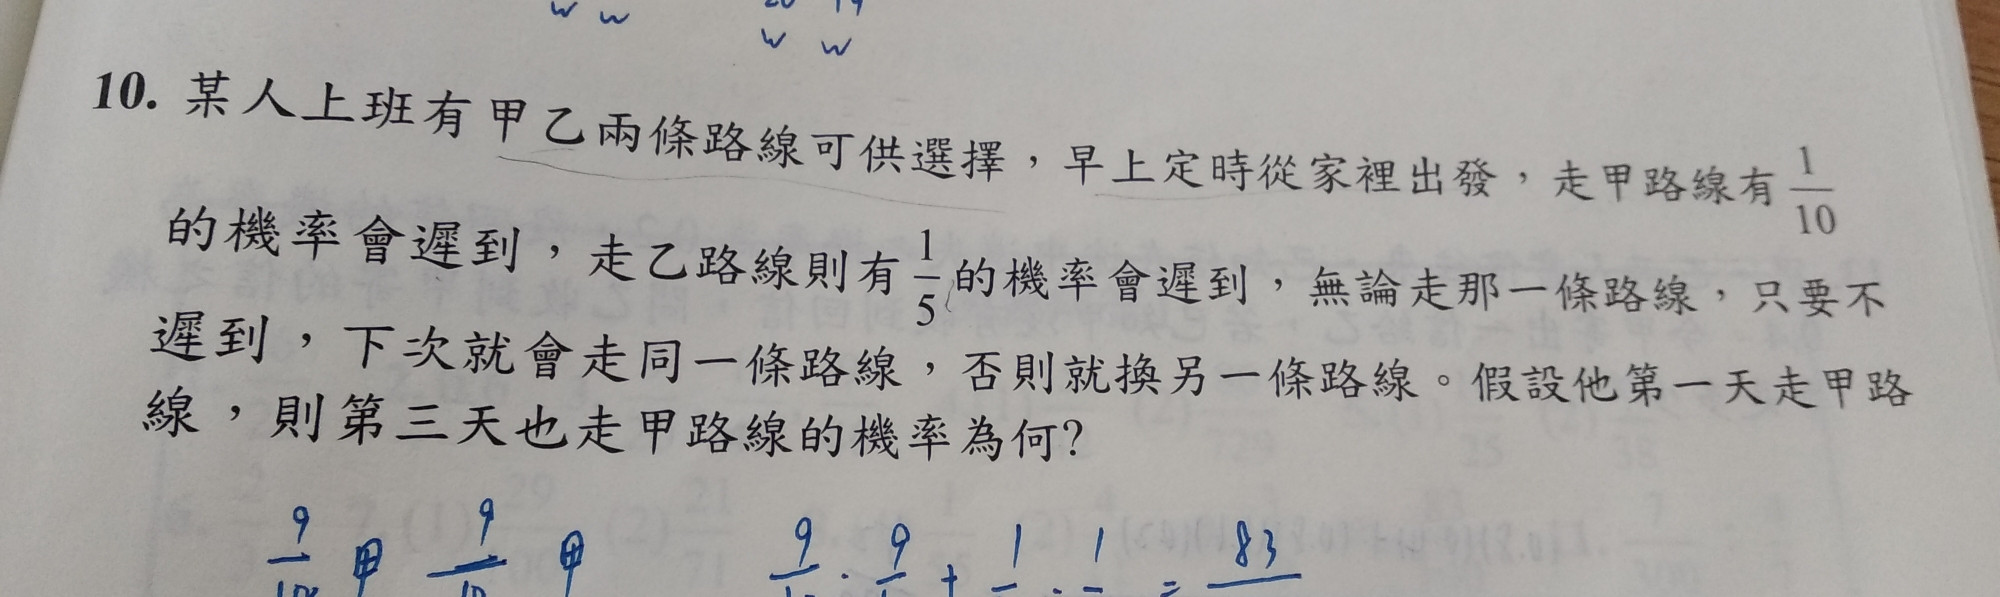 w w 20 19
w w
10. 某人上班有甲乙兩條路線可供選擇，早上定時從家裡出發，走甲路線有 1/10
的機率會遲到，走乙路線則有 1/5 的機率會遲到，無論走那一條路線，只要不
遲到，下次就會走同一條路線，否則就換另一條路線。假設他第一天走甲路
線，則第三天也走甲路線的機率為何?
9/10 甲 9/10 甲 9 · 9 + 1 · 1 = 83